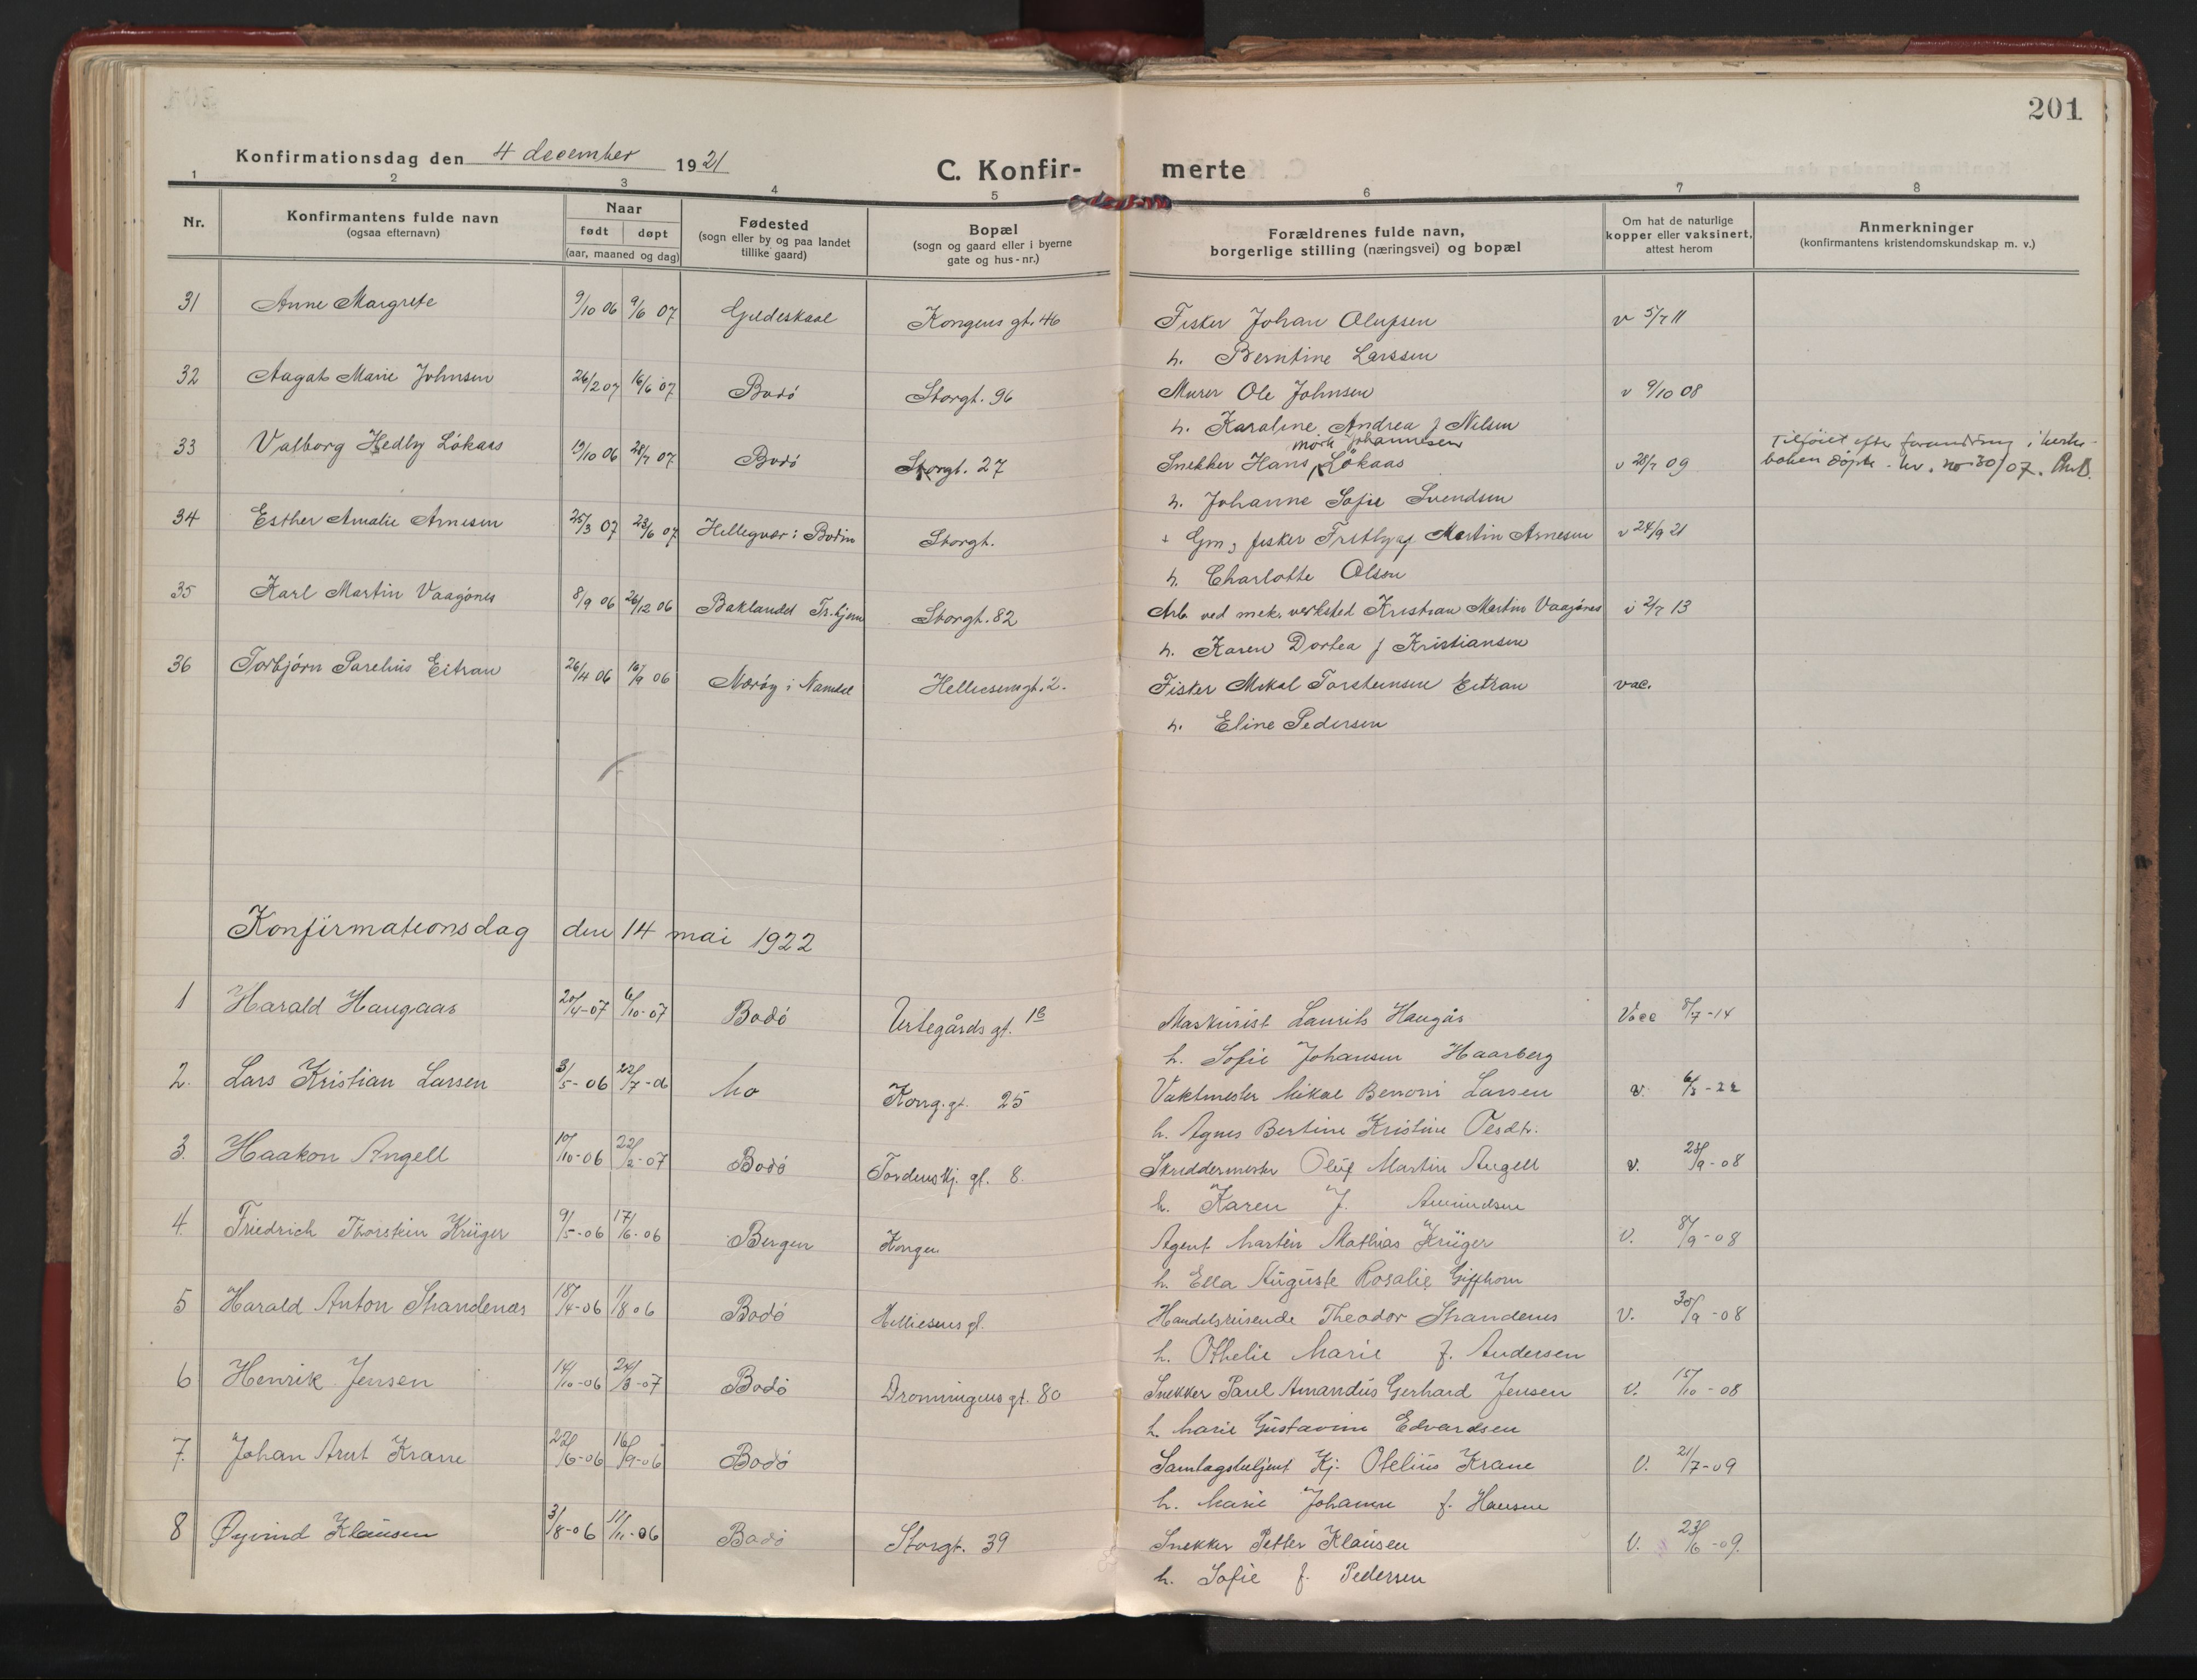 201
Konfirmationsdag den 4 december 1921
C. Konfir- merte
1 2 3 4 5 6 7 8
Nr.
Konfirmantens fulde navn
(ogsaa efternavn)
Naar
født døpt
(aar, maaned og dag)
Fødested
(sogn eller by og paa landet
tillike gaard)
Bopæl
(sogn og gaard eller i byerne
gate og hus-nr.)
Forældrenes fulde navn,
borgerlige stilling (næringsvei) og bopæl
Om hat de naturlige
kopper eller vaksinert,
attest herom
Anmerkninger
(konfirmantens kristendomskundskap m. v.)
31 Anne Margrete 9/10 06 9/6 07 Gildeskaal Kongens gt. 46 Fisker Johan Olufsen v 5/7 11
h. Berntine Larssen
32 Aagat Marie Johnsen 26/2 07 16/6 07 Bodó Storgt. 96 Murer Ole Johnsen v 9/10 08
h. Karaline Andrea f Nilsen
33 Valborg Hedby Lókaas 19/10 06 28/7 07 Bodó Storgt. 27 Snekker Hans Mork Johannesen Lókaas v 28/7 09 Tilfóiet efter forandring i kirke-
boken dópte no 30/07.
h. Johanne Sofie Svendsen
34 Esther Amalie Arnesen 25/3 07 23/6 07 Helligvær i Bodin Storgt. + Gm, fisker Martin Arnesen v 24/9 21
h. Charlotte Olsen
35 Karl Martin Vaagónes 8/9 06 26/12 06 Baklandet Tr.hjem Storgt. 82 Arb. ved mek. verksted Kristian Martin Vaagónes v 2/7 13
h. Karen Dortea f Kristiansen
36 Torbjórn Parelius Eitran 26/4 06 16/9 06 Næróy i Namdal Helliesensgt. 2. Fisker Mikal Torsteinsen Eitran vac.
h. Eline Pedersen
Konfirmationsdag den 14 mai 1922
1 Harald Haugaas 20/4-07 6/10-07 Bodó Urtegårds gt. 1B Maskinist Laurits Haugås Vacc 8/7-14
h. Sofie Johansen Haarberg
2. Lars Kristian Larsen 3/5-06 22/7-06 Mo Kong.gt. 25 Vaktmester Mikal Benoni Larsen v. 6/3-22
h. Agnes Bertine Kristine
3. Haakon Angell 10/10-06 22/2-07 Bodó Tordenskj. gt. 8. Skreddermester Oluf Martin Angell v. 23/9-08
h. Karen J. Amundsen
4. Friedrich Thorstein Krüger 9/5-06 17/6-06 Bergen Kongen Agent Martin Mathias Krüger V. 8/9-08
h. Ella Auguste Rosalie Giffhorn
5 Harald Anton Strandenæs 18/4-06 1/8 06 Bodó Helliesens gt. Handelsreisende Theodor Strandenes V. 30/9-08
h. Othelie Marie f. Andersen
6 Henrik Jensen 14/10-06 24/3-07 Bodó Dronningens gt. 80 Snekker Paul Amandus Gerhard Jensen V. 15/10-08
h. Marie Gustavine Edvardsen
7. Johan Arnt Krane 28/6-06 16/9-06 Bodó Samlagsbetjent Kj. Otelius Krane V. 21/7-09
h. Marie Johanne f. Hansen
8 Øyvind Klausen 3/8-06 11/11-06 Bodó Storgt. 39 Snekker Petter Klausen V. 23/6-09.
h. Sofie f. Pedersen